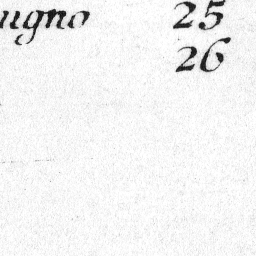 ugno 25
26